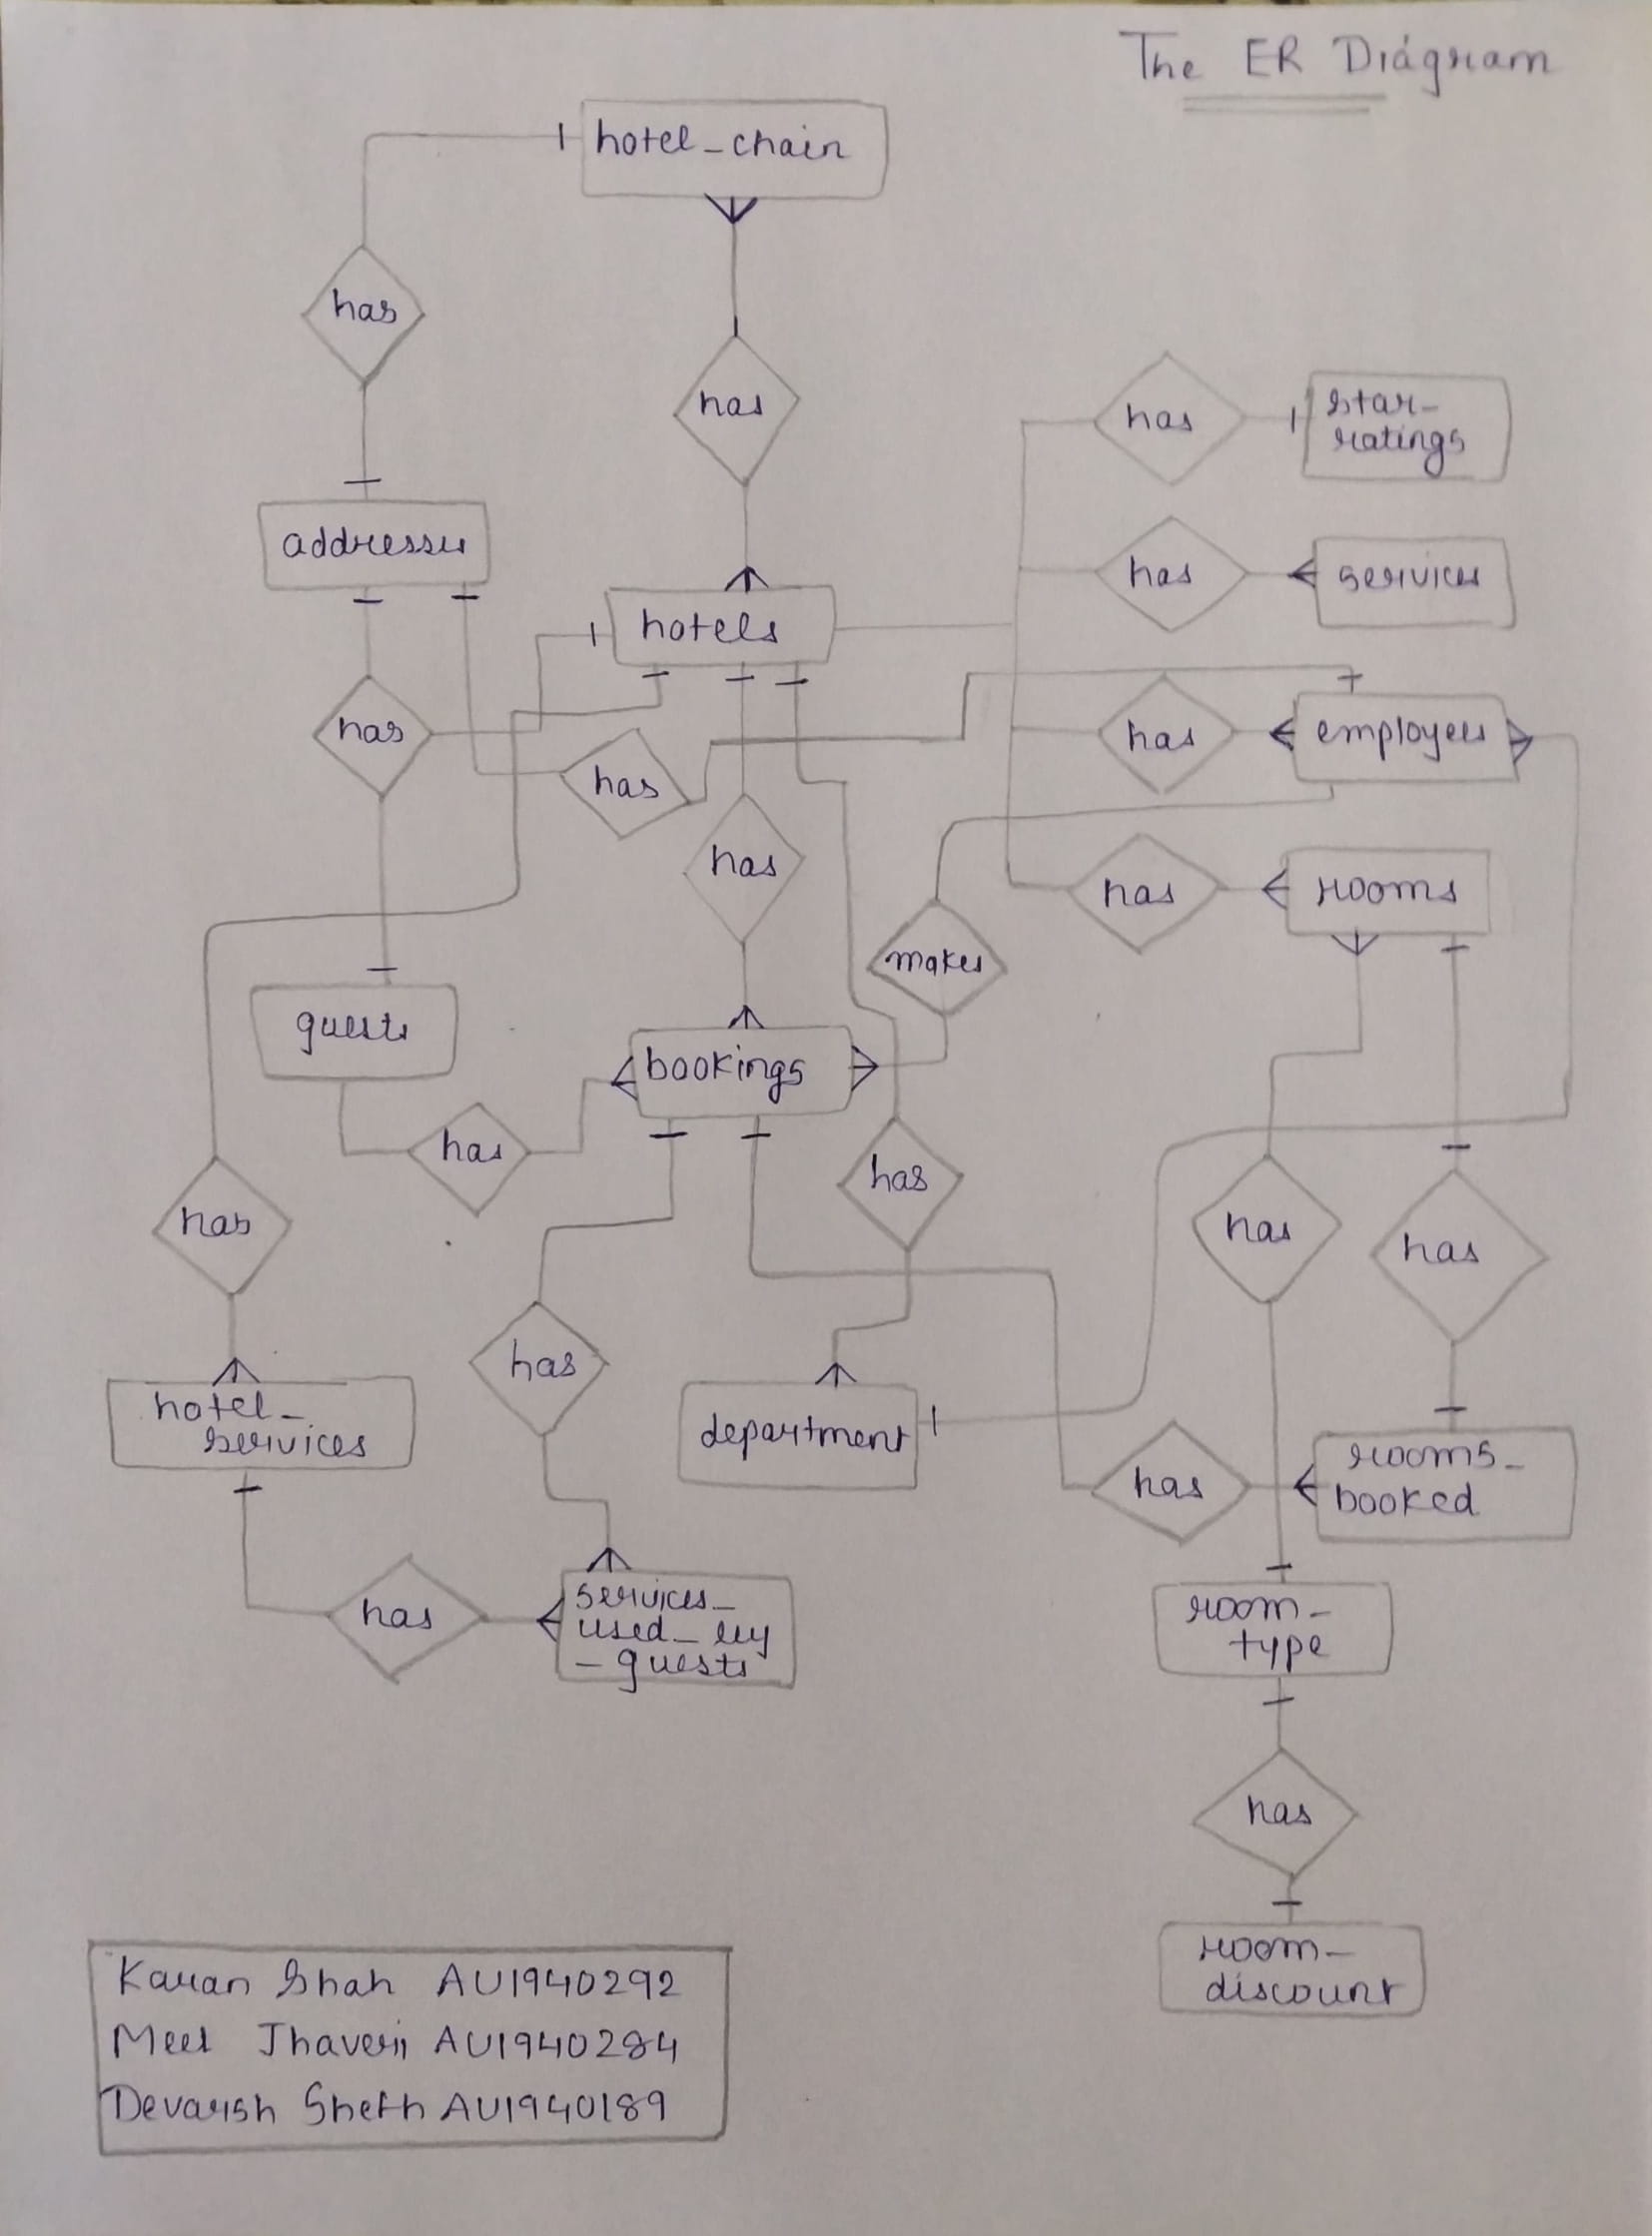 The ER Diagram
hotel_chain
has
has
has
star_
ratings
addresses
has
services
hotels
has
has
employees
has
has
has
rooms
makes
guests
bookings
has
has
has
has
has
has
hotel_
services
department
has
rooms_
booked
has
services_
used_by
_guests
room_
type
has
room_
discount
Karan Shah AU1940292
Meet Jhaveri AU1940284
Devarsh Sheth AU1940189